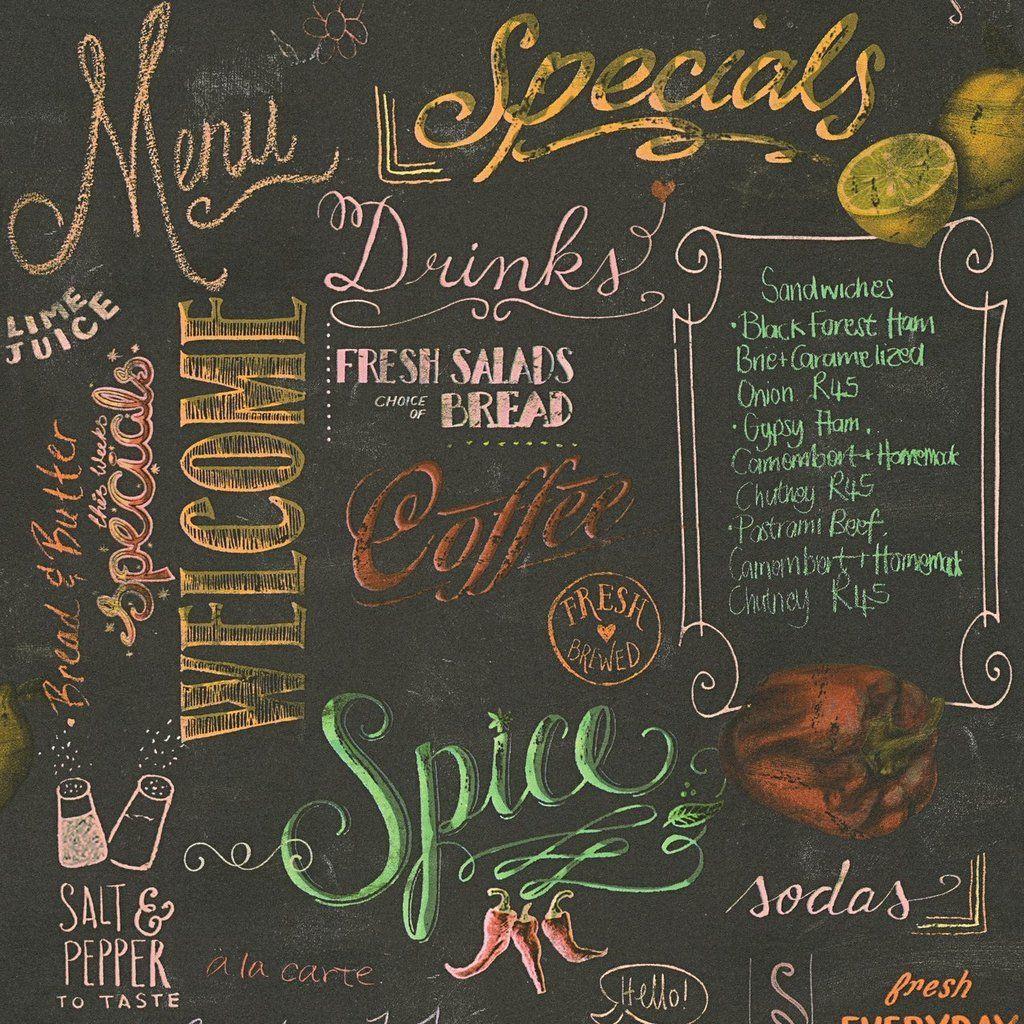 Menu
Specials
Drinks
LIME
JUICE
FRESH SALADS
CHOICE
OF
BREAD
Sandwiches
·Black Forest Ham
Brie+Caramelized
Onion R45
·Gypsy Ham.
Camembort + Homemade
Chutney R45
·Pastrami Beef.
Camembort + Homemade
Chutney R45
WELCOME
this weeks
specials
·Bread & Butter
Coffee
FRESH
BREWED
Spice
SALT &
PEPPER
TO TASTE
à la carte
sodas
Hello!
fresh
EVERYDAY